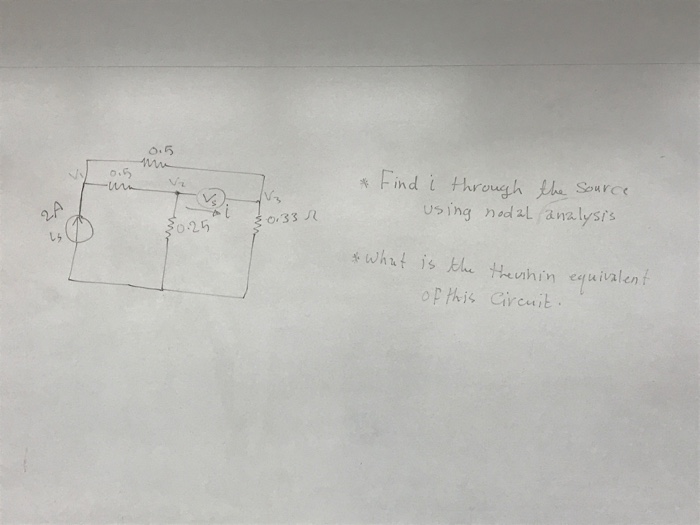 0.5
V1 0.5 V2 Vs V3
2A
is
0.25
i
0.33 Ω
* Find i through the source
using nodal analysis
* what is the thevnin equivalent
of this Circuit.